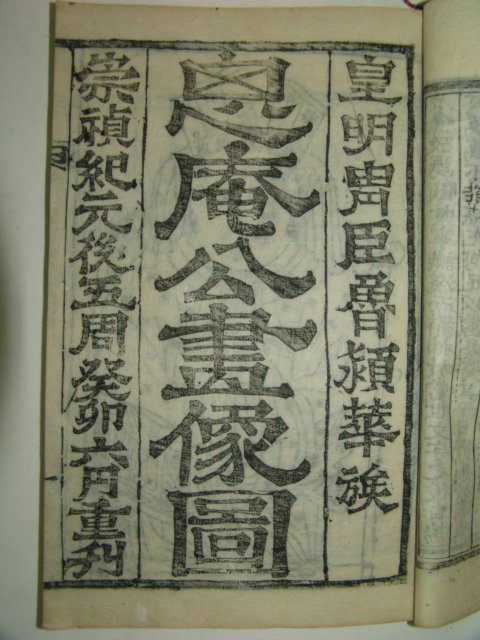 皇明冑臣魯潁華族
思庵公畫像圖
崇禎紀元後五周癸卯六月重刊